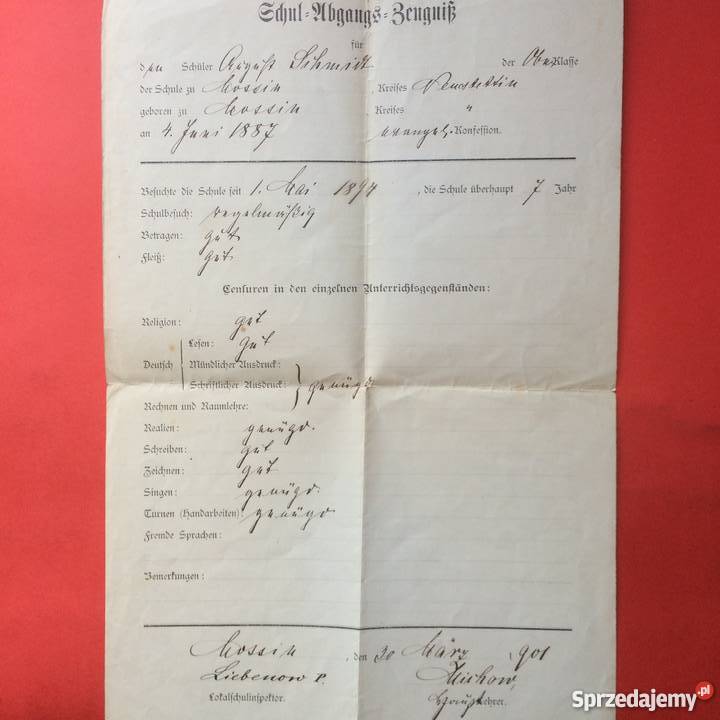 Schul-Abgangs-Zeugniß
für
den Schüler August Schmidt der Ober Klasse
der Schule zu Mossin, Kreises Neustettin
geboren zu Mossin, Kreises "
an 4. Juni 1887 evangel. Konfession.
Besuchte die Schule seit 1. Mai 1894, die Schule überhaupt 7 Jahr
Schulbesuch: regelmäßig
Betragen: gut
Fleiß: gut
Censuren in den einzelnen Unterrichtsgegenständen:
Religion: gut
Lesen: gut
Deutsch Mündlicher Ausdruck:
Schriftlicher Ausdruck: genügd.
Rechnen und Raumlehre:
Realien: genügd.
Schreiben: gut
Zeichnen: gut
Singen: genügd.
Turnen (Handarbeiten): genügd.
Fremde Sprachen:
Bemerkungen:
Mossin, den 30 März 1901
Liebenow P.
Lokalschulinspektor. Hauptlehrer.
Sprzedajemy.pl